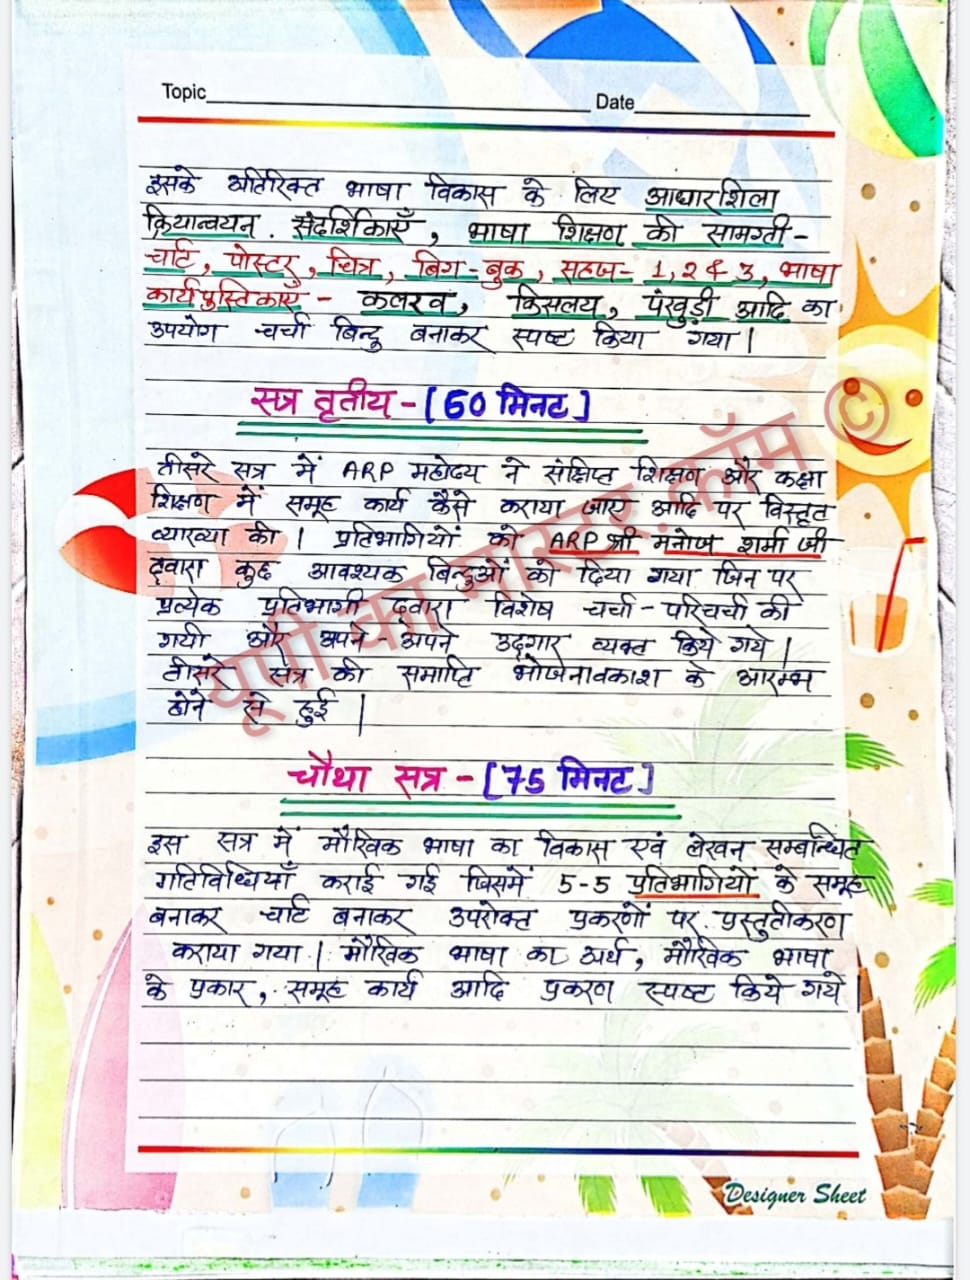 Topic Date
इसके अतिरिक्त भाषा विकास के लिए आधारशिला
क्रियान्वयन. संदर्शिकाएँ, भाषा शिक्षण की सामग्री -
चार्ट, पोस्टर, चित्र, बिग-बुक, सहज- 1,2 & 3, भाषा
कार्यपुस्तिकाएं - कलरव, किसलय, पंखुड़ी आदि का
उपयोग चर्चा बिन्दु बनाकर स्पष्ट किया गया।
सत्र तृतीय - [60 मिनट]
तीसरे सत्र में ARP महोदय ने संक्षिप्त शिक्षण और कक्षा
शिक्षण में समूह कार्य कैसे कराया जाए आदि पर विस्तृत
व्याख्या की। प्रतिभागियों को ARP श्री मनोज शर्मा जी
द्वारा कुछ आवश्यक बिन्दुओं को दिया गया जिन पर
प्रत्येक प्रतिभागी द्वारा विशेष चर्चा-परिचर्चा की
गयी और अपने-अपने उद्गार व्यक्त किये गये।
तीसरे सत्र की समाप्ति भोजनावकाश के आरम्भ
होने से हुई।
चौथा सत्र - [75 मिनट]
इस सत्र में मौखिक भाषा का विकास एवं लेखन सम्बन्धित
गतिविधियाँ कराई गई जिसमें 5-5 प्रतिभागियों के समूह
बनाकर चार्ट बनाकर उपरोक्त प्रकरणों पर प्रस्तुतीकरण
कराया गया। मौखिक भाषा का अर्थ, मौखिक भाषा
के प्रकार, समूह कार्य आदि प्रकरण स्पष्ट किये गये।
यूपी का मास्टर.कॉम ©
Designer Sheet